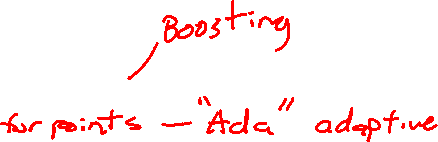 Boosting
for points — "Ada" adaptive